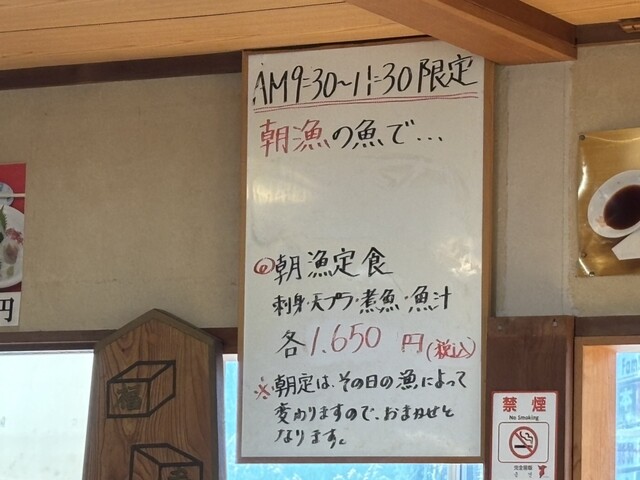 AM9:30~11:30限定
朝漁の魚で...
◎朝漁定食
刺身・天プラ・煮魚・魚汁
各1.650円(税込)
※朝定は、その日の漁によって
変わりますので、おまかせと
なります。
円
福
禁煙
No Smoking